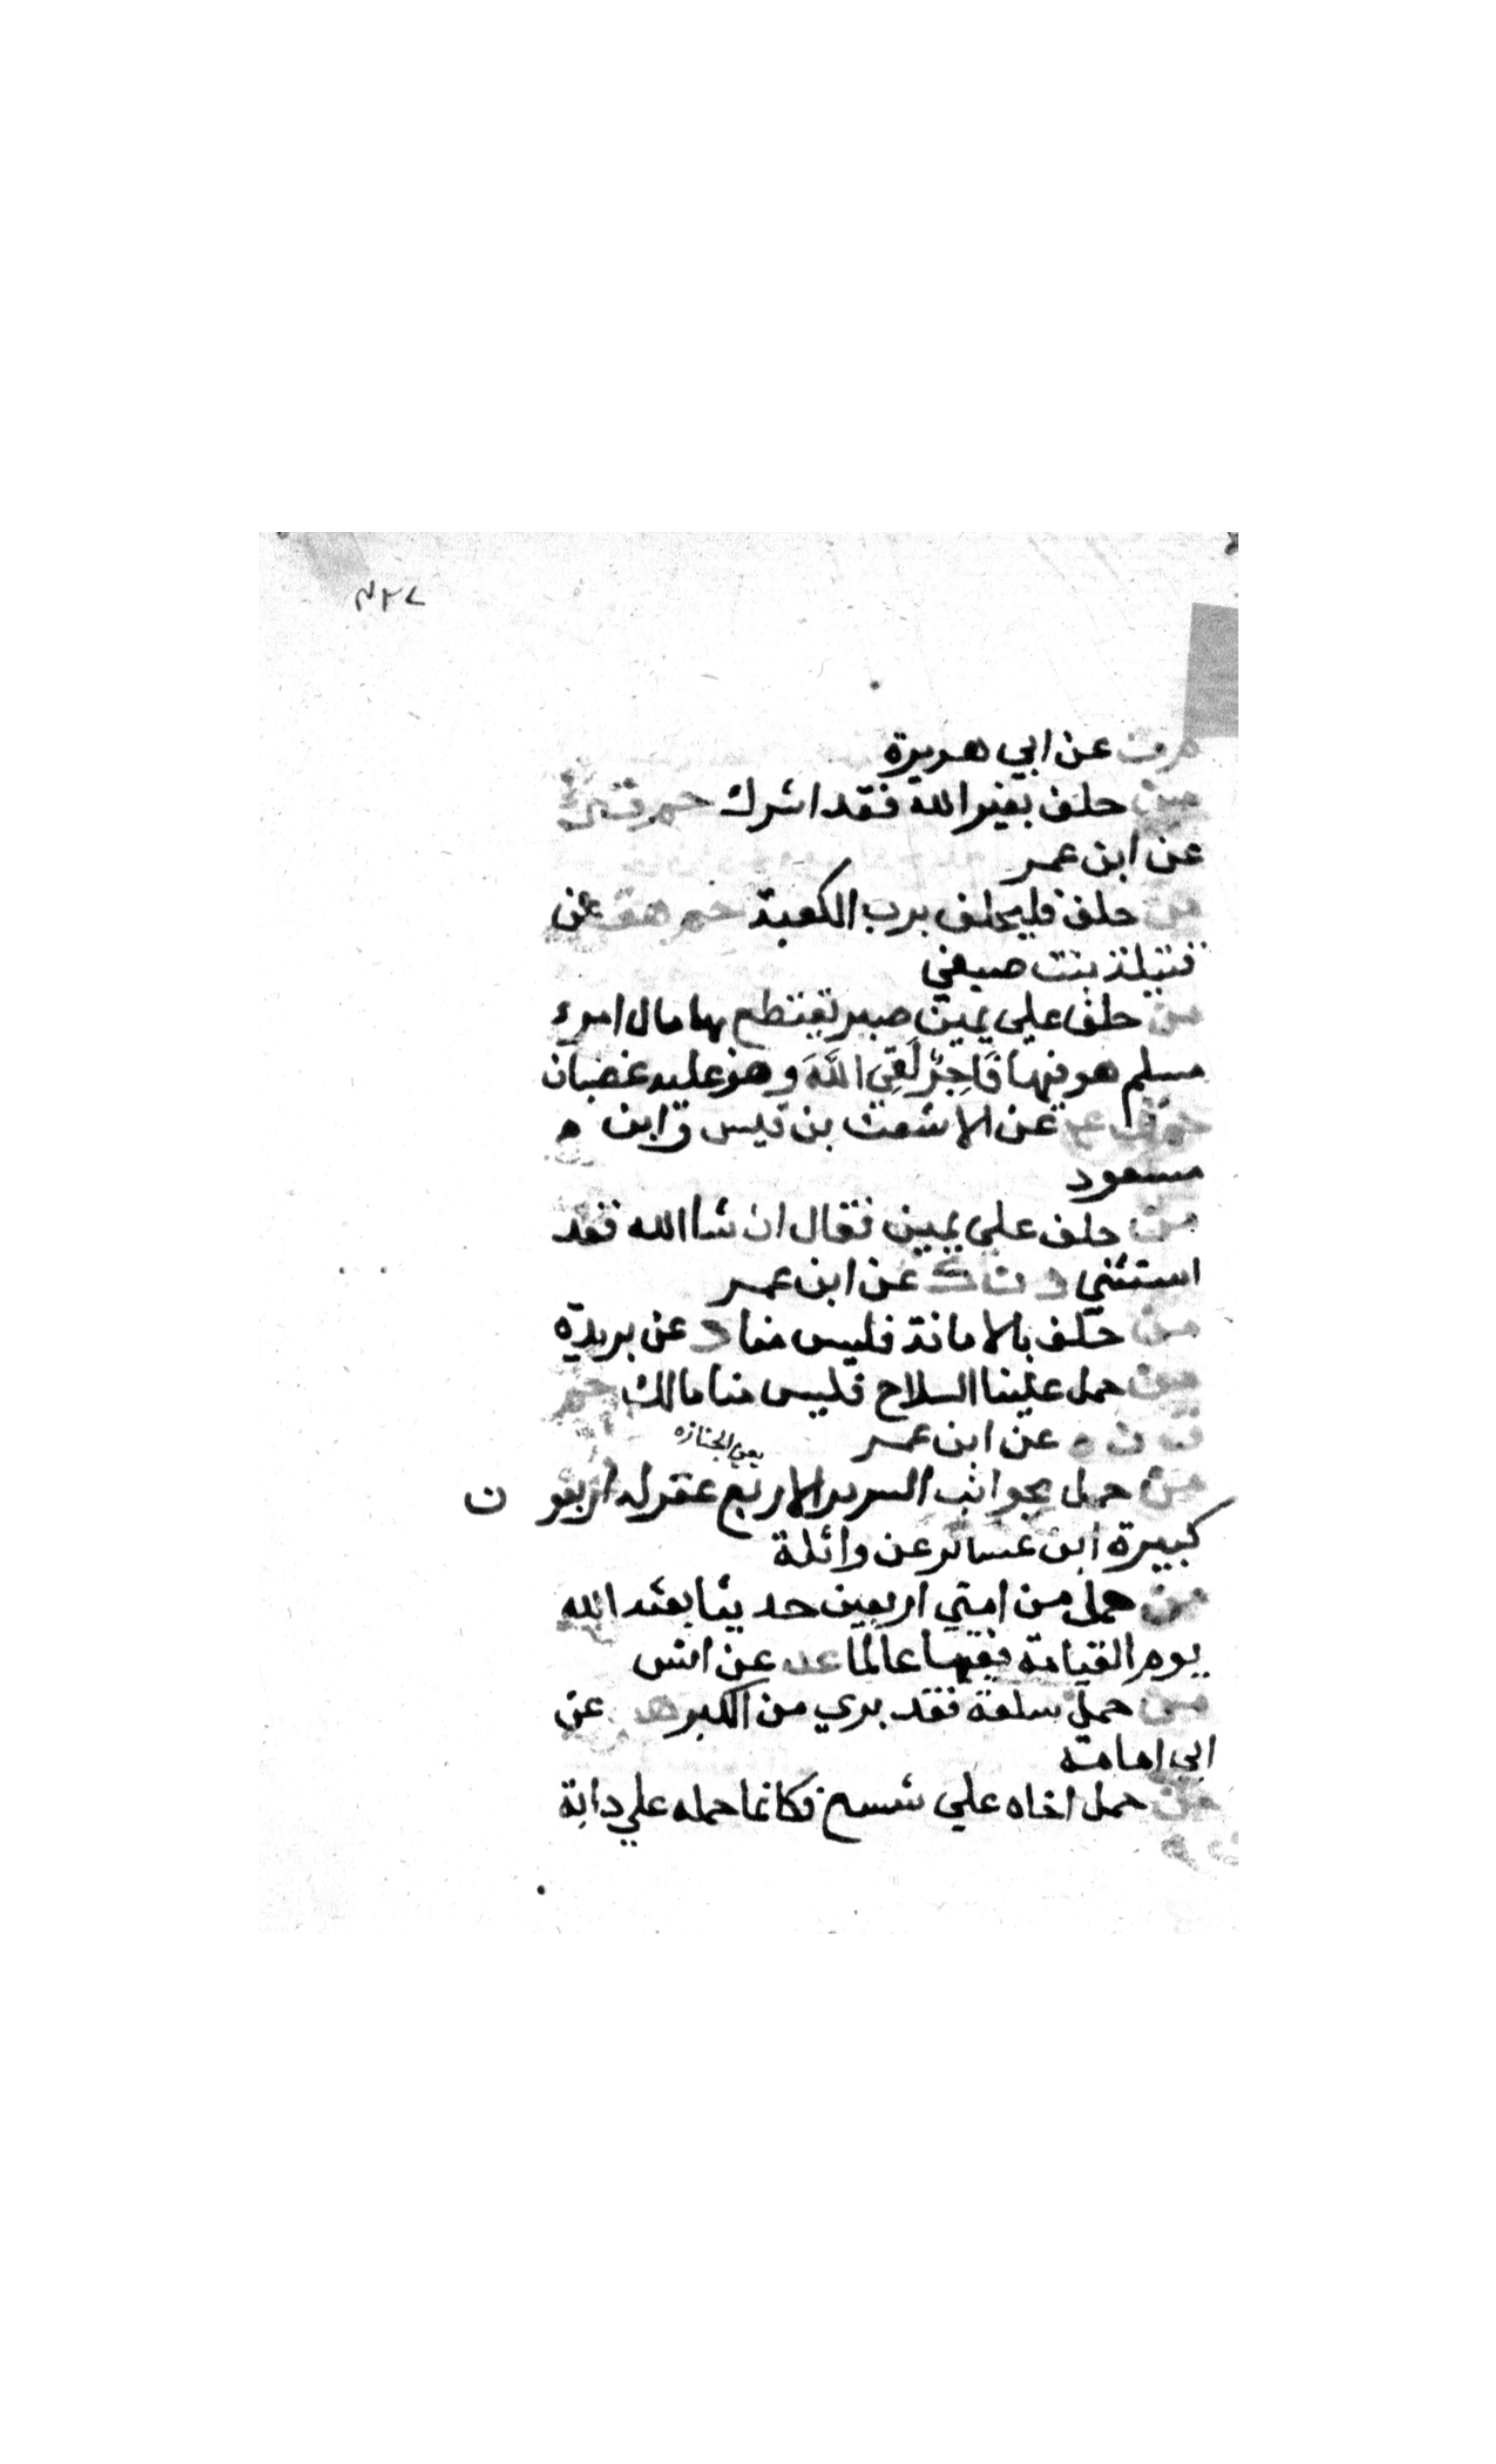 م ت عن ابي هريرة
من حلف بغير الله فقد اشرك حم ت ك
عن ابن عمر
من حلف فليحلف برب الكعبة حم هق عن
قتيلة بنت صيفي
من حلف علي يمين صبر يقتطع بها مال امرء
مسلم هو فيها فَاجِرٌ لَقِيَ اللَّهَ وهو عليه غضبان
عن الاشعث بن قيس وابن م
مسعود
من حلف علي يمين فقال ان شا الله فقد
استثني د ن ك عن ابن عمر
من حلف بالامانة فليس منا د عن بريدة
من حمل علينا السلاح فليس منا مالك حم
ق ن ه عن ابن عمر
يعني الجنازه
من حمل بجوانب السرير الاربع غفر له اربعون
كبيرة ابن عساكر عن واثلة
من حمل من امتي اربعين حديثا بعثه الله
يوم القيامة فقيها عالما عد عن انس
من حمل سلعة فقد بري من الكبر هب عن
ابي امامة
من حمل اخاه علي شسع فكانما حمله علي دابة